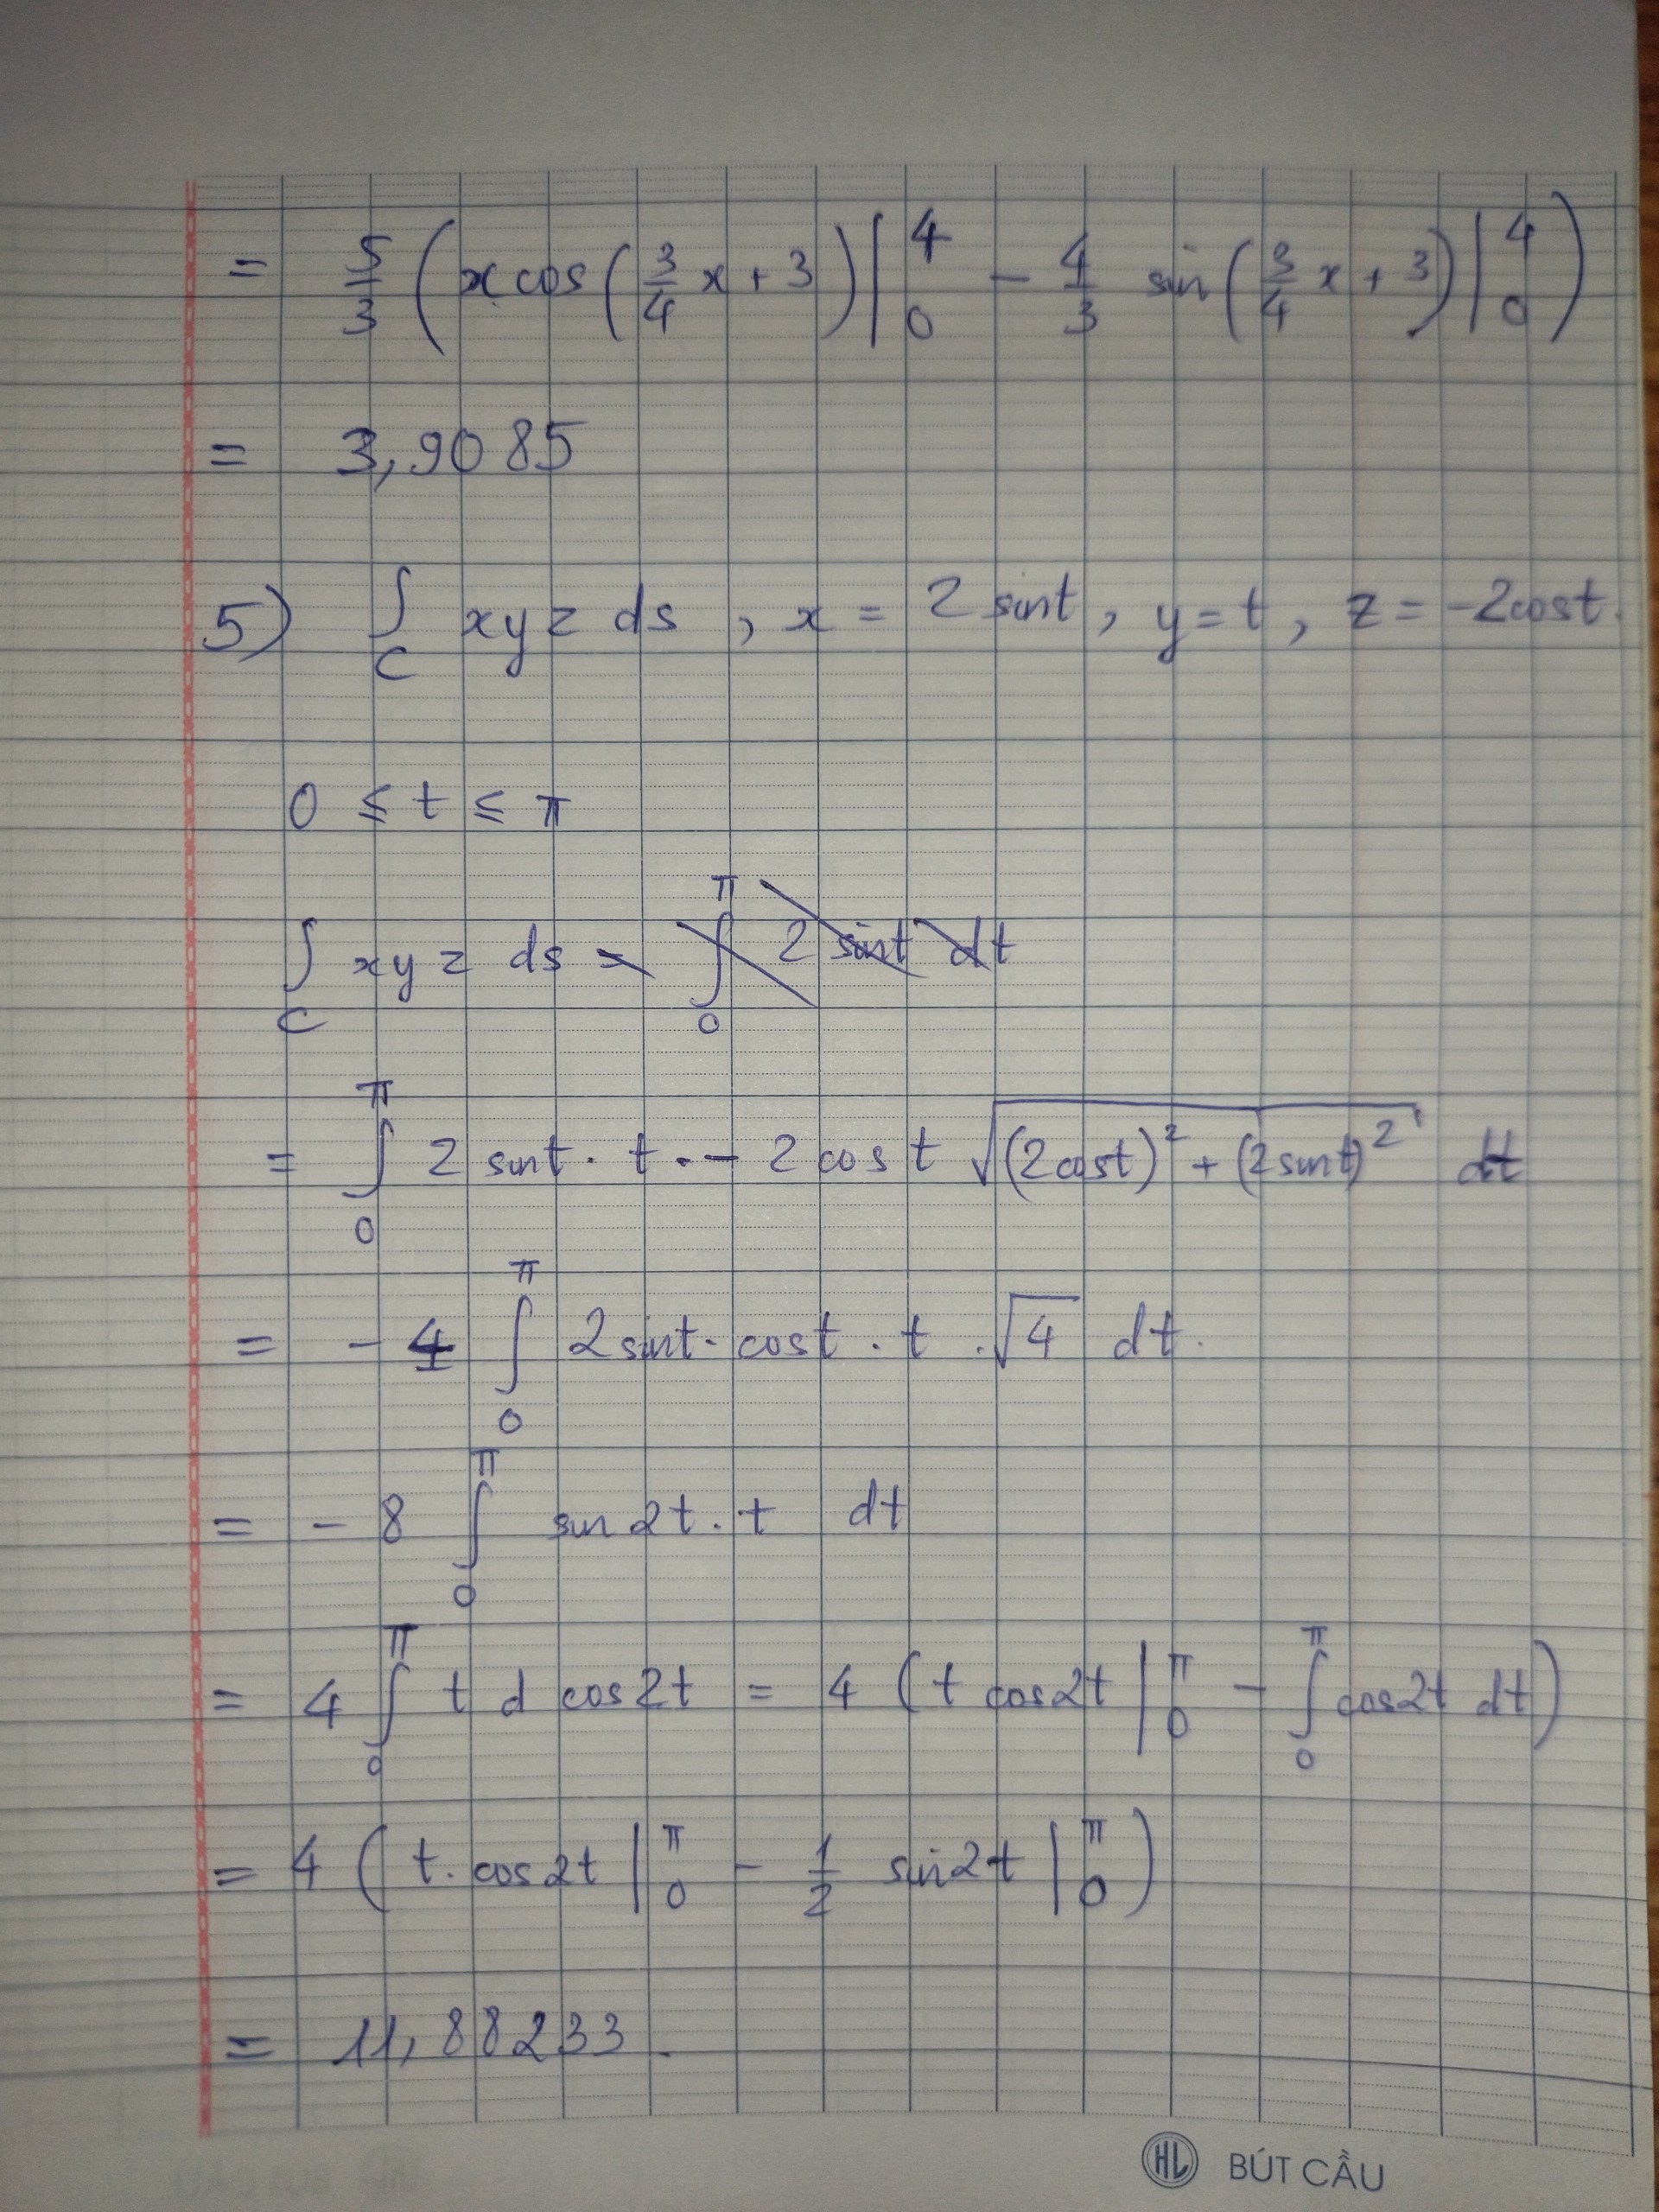 = 5/3 ( x cos(3/4 x + 3) |₀⁴ − 4/3 sin(3/4 x + 3) |₀⁴ )
= 3,9085
5) ∫_C xyz ds , x = 2 sint , y = t , z = -2cost.
0 ≤ t ≤ π
∫_C xyz ds = ∫₀^π 2 sint dt
= ∫₀^π 2 sint . t . − 2 cos t √((2cost)² + (2sint)²) dt
= − 4 ∫₀^π 2sint . cost . t . √4 dt.
= − 8 ∫₀^π sin2t . t dt
= 4 ∫₀^π t d cos2t = 4 ( t cos2t |₀^π − ∫₀^π cos2t dt )
= 4 ( t. cos2t |₀^π − 1/2 sin2t |₀^π )
= 11,88233.
HL BÚT CẦU